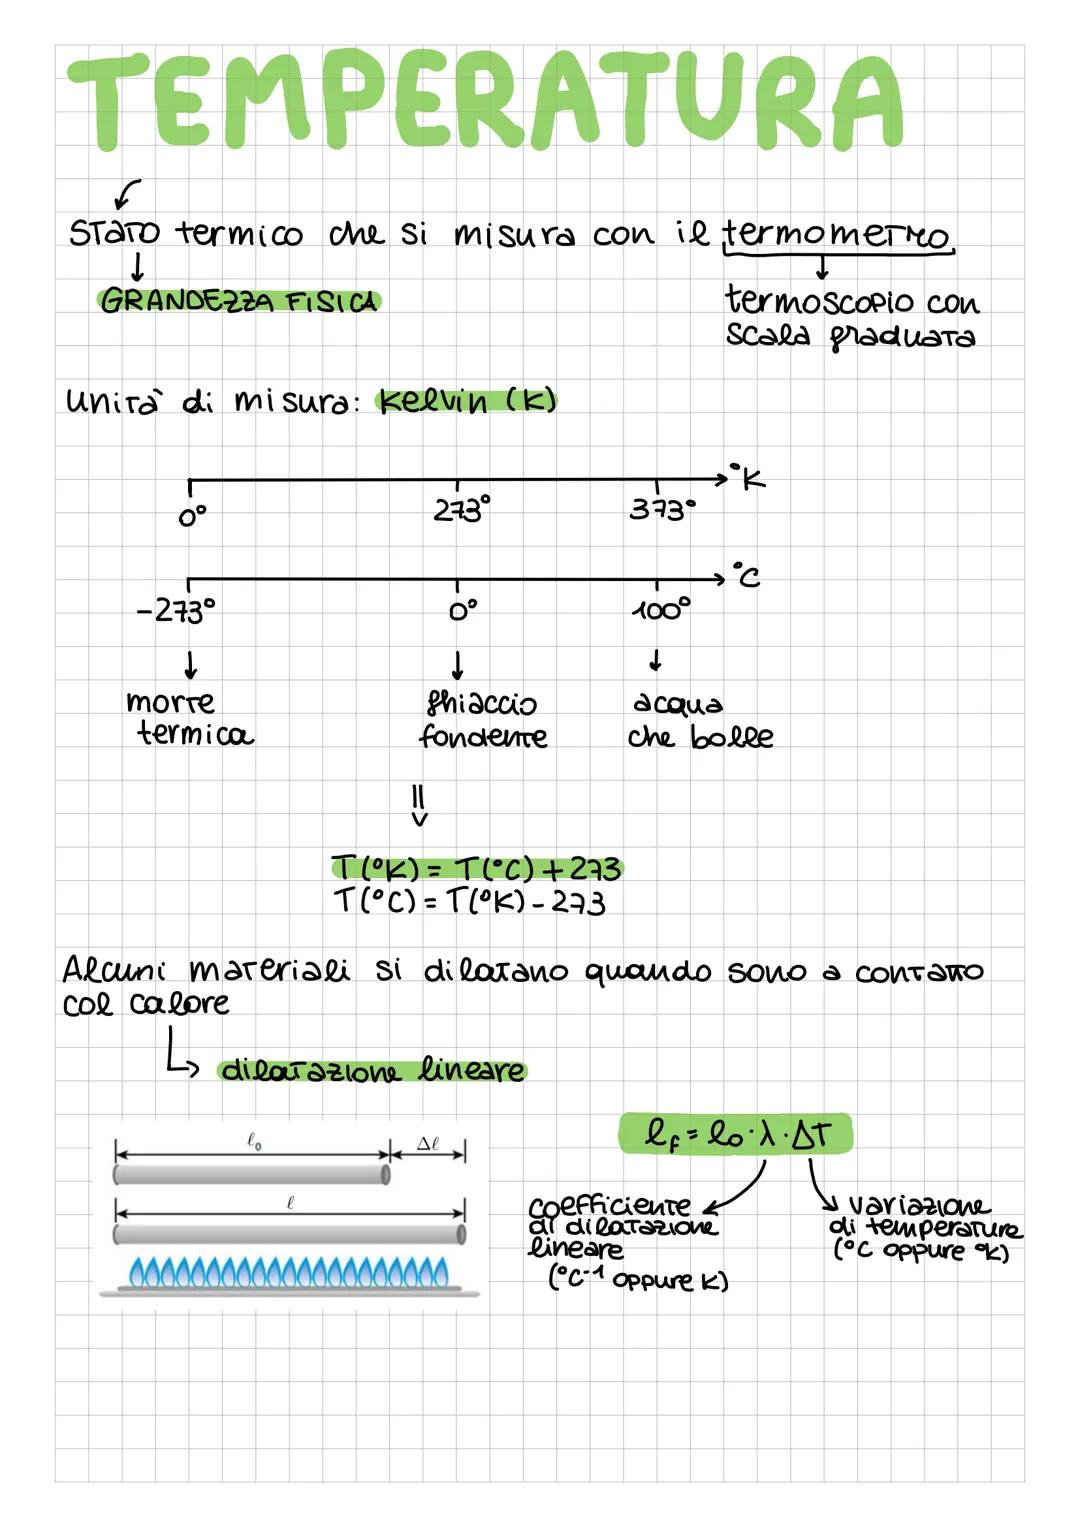 TEMPERATURA
STATO termico che si misura con il termometro
GRANDEZZA FISICA
termoscopio con
scala graduata
Unità di misura: Kelvin (K)
°K
0° 273° 373°
°C
-273° 0° 100°
morte
termica
ghiaccio
fondente
acqua
che bolle
T(°K) = T(°C) + 273
T(°C) = T(°K) - 273
Alcuni materiali si dilatano quando sono a contatto
col calore
dilatazione lineare
ℓ₀ Δℓ
ℓ
ℓf = ℓ₀·λ·ΔT
coefficiente
di dilatazione
lineare
(°C⁻¹ oppure K)
variazione
di temperature
(°C oppure °K)